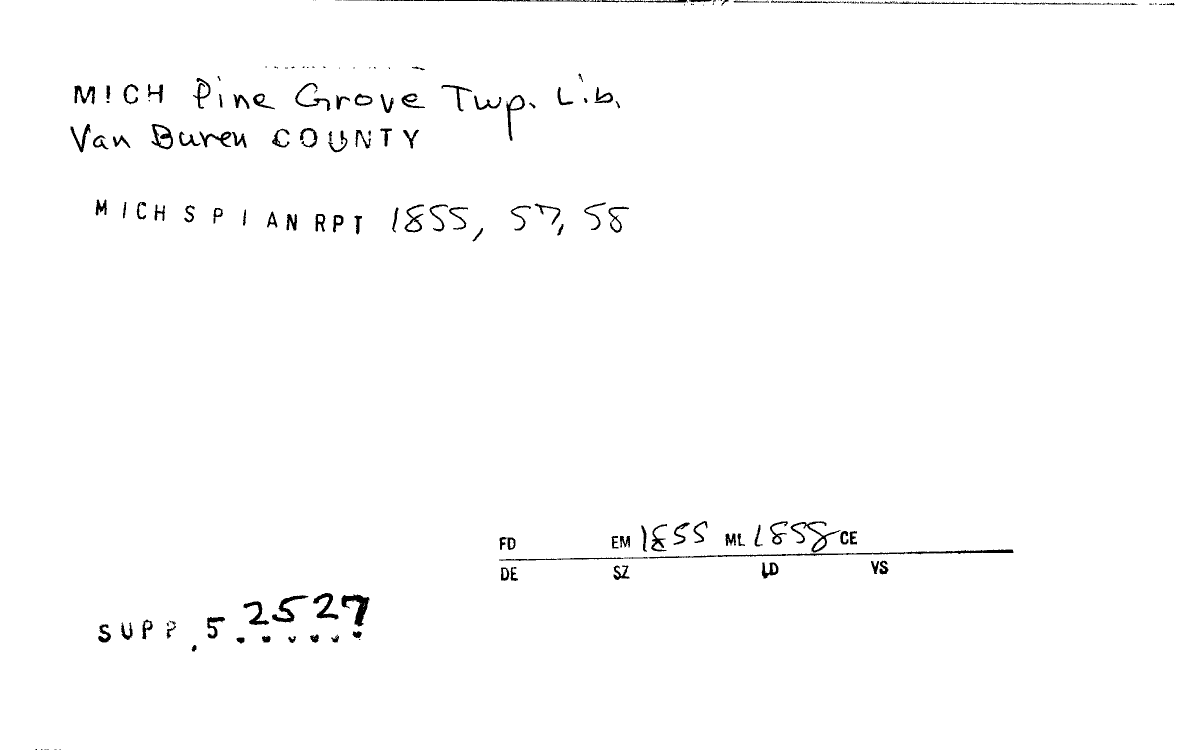 MICH Pine Grove Twp. Lib.
Van Buren COUNTY
MICH S P I AN RPT 1855, 57, 58
FD EM 1855 ML 1858 CE
DE SZ LD VS
SUPP. 5 2527